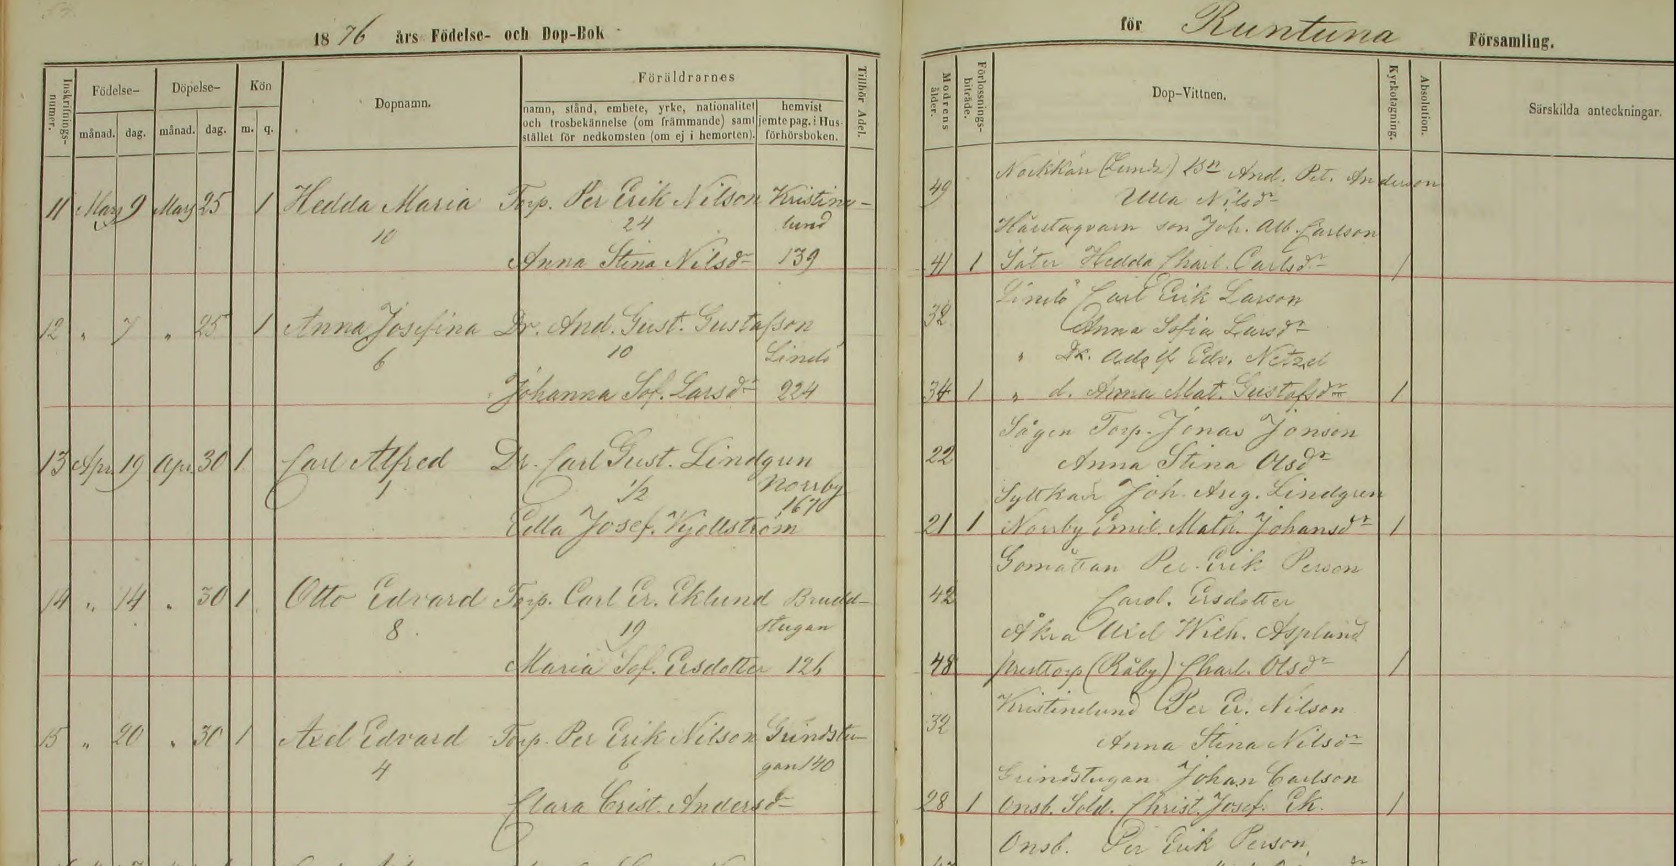 1876 års Födelse- och Dop-Bok
för Runtuna Församling.
Inskrifnings-numer.
Födelse-
månad. dag.
Döpelse-
månad. dag.
Kön
m. q.
Dopnamn.
Föräldrarnes
namn, stånd, embete, yrke, nationalitet
och trosbekännelse (om främmande) samt
stället för nedkomsten (om ej i hemorten).
hemvist
jemte pag. i Hus-
förhörsboken.
Tillhör Adel.
Modrens ålder.
Förlossnings-biträde.
Dop-Vittnen.
Kyrkotagning.
Absolution.
Särskilda anteckningar.
11 Mars 9 Mars 25 1 Hedda Maria Torp. Per Erik Nilson Kristine-
10 24 lund
Anna Stina Nilsdr 139
49 (Lunda) And. Pet. Anderson
Ulla Nilsdr
son Joh. Alb. Carlson
41 1 Säter Hedda Charl. Carlsdr 1
12 " 7 " 25 1 Anna Josefina Dr. And. Gust. Gustafson
6 10 Lindö
Johanna Sof. Larsdr 224
32 Lindö Carl Erik Larson
Anna Sofia Larsdr
" Dr. Adolf Edv. Netzel
34 1 " d. Anna Mat. Gustafsdr 1
13 Apr 19 Apr 30 1 Carl Alfred Dr. Carl Gust. Lindgren
1 1/2 Norrby
167
Edla Josef. Kjellström
22 Sågen Torp. Jonas Jonson
Anna Stina Olsdr
Joh. Aug. Lindgren
21 1 Norrby Emil. Math. Johansdr 1
14 " 14 " 30 1 Otto Edvard Torp. Carl Er. Eklund Brudd-
8 19 stugan
Maria Sof. Ersdotter 126
42 Per Erik Person
Carol. Ersdotter
Åkra Axel Wilh. Asplund
48 (Råby) Charl. Olsdr 1
15 " 20 " 30 1 Axel Edvard Torp. Per Erik Nilson Grindstu-
4 6 gan 140
Clara Crist. Andersdr
32 Kristinelund Per Er. Nilson
Anna Stina Nilsdr
Grindstugan Johan Carlson
28 1 Onsb. Sold. Christ. Josef. Ek. 1
Onsb. Per Erik Person